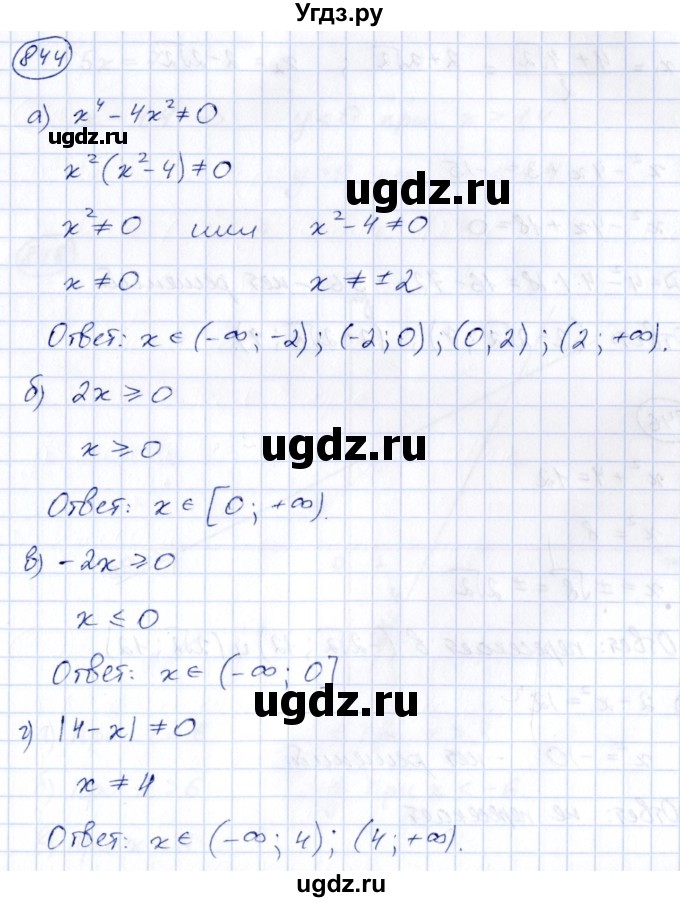 Угдз.ру
844
а) x⁴ - 4x² ≠ 0
ugdz.ru
x²(x² - 4) ≠ 0
ugdz.ru
x² ≠ 0 или x² - 4 ≠ 0
x ≠ 0 x ≠ ±2
Ответ: x ∈ (-∞; -2); (-2; 0); (0; 2); (2; +∞).
б) 2x ≥ 0
ugdz.ru
x ≥ 0
Ответ: x ∈ [0; +∞).
ugdz.ru
в) -2x ≥ 0
x ≤ 0
Ответ: x ∈ (-∞; 0]
ugdz.ru
г) |4 - x| ≠ 0
x ≠ 4
ugdz.ru
Ответ: x ∈ (-∞; 4); (4; +∞).
ugdz.ru